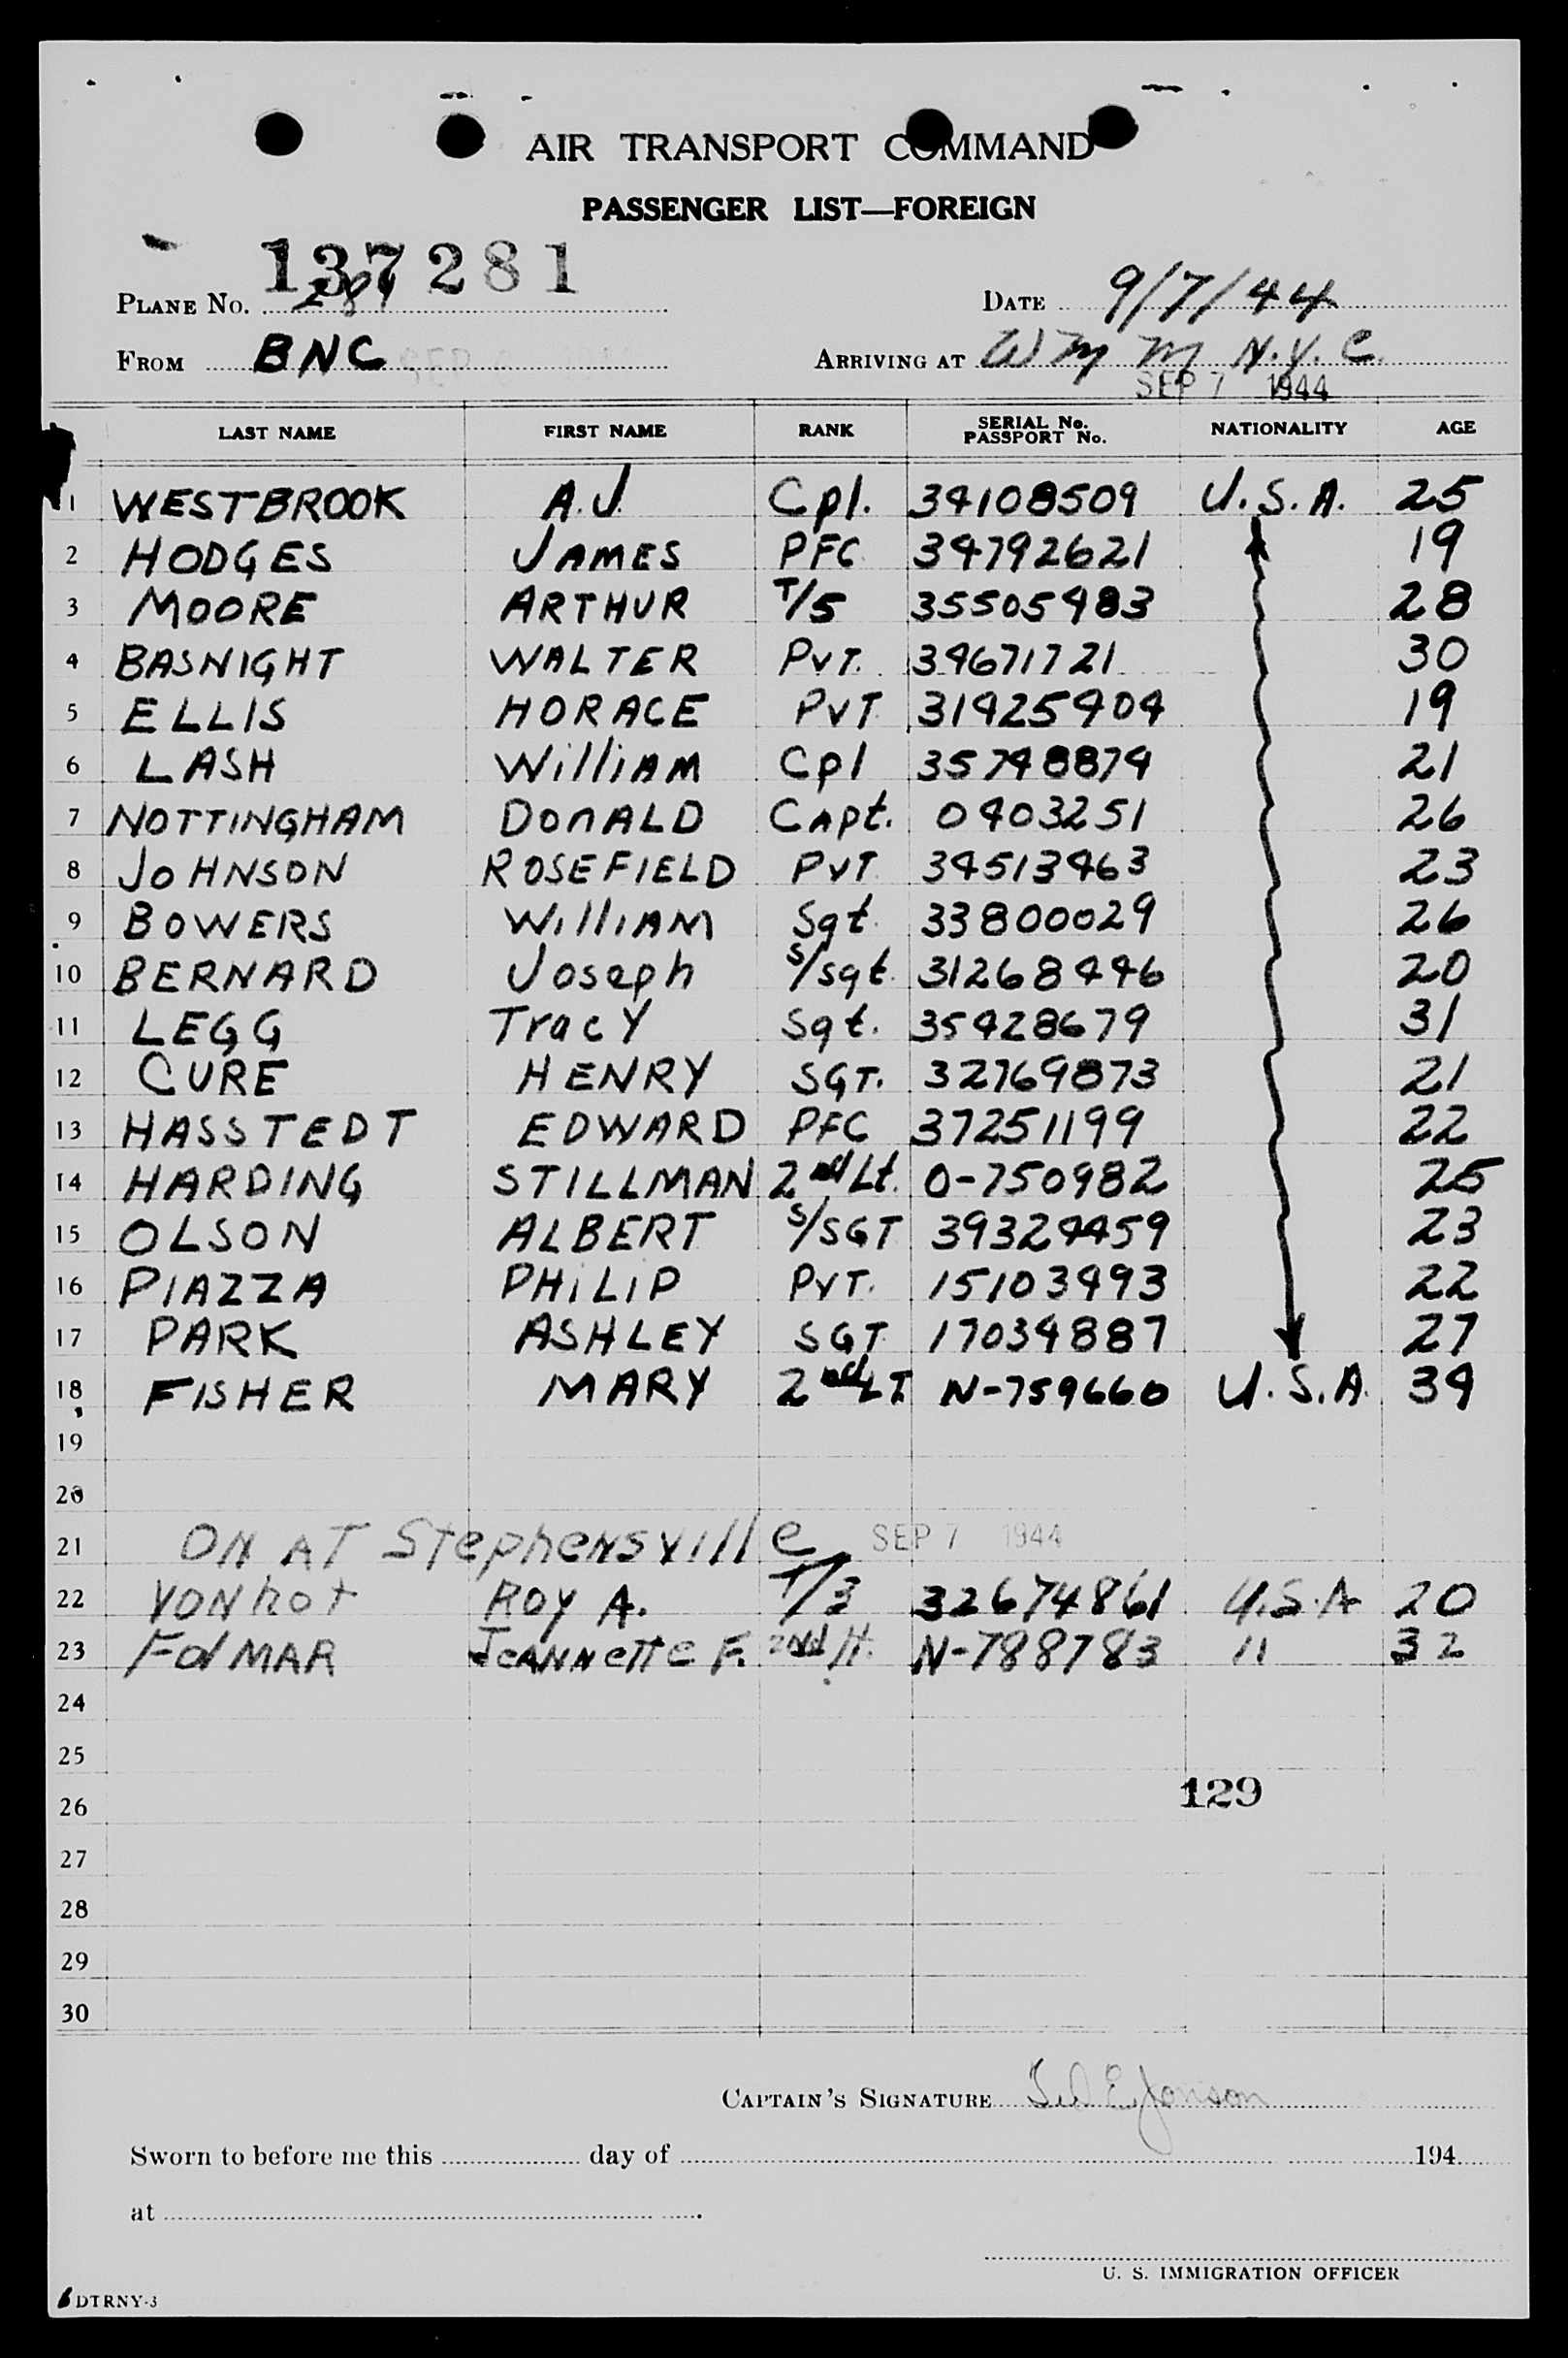 AIR TRANSPORT COMMAND
PASSENGER LIST—FOREIGN
137281
PLANE No. 281 DATE 9/7/44
FROM BNC ARRIVING AT N.Y.C.
SEP 7 1944
LAST NAME FIRST NAME RANK SERIAL No. PASSPORT No. NATIONALITY AGE
1 WESTBROOK A.J. Cpl. 34108509 U.S.A. 25
2 HODGES JAMES PFC 34792621 19
3 MOORE ARTHUR T/5 35505483 28
4 BASNIGHT WALTER PVT. 34671721 30
5 ELLIS HORACE PVT 31425404 19
6 LASH WilliAM Cpl 35748874 21
7 NOTTINGHAM DonALD CApt. 0403251 26
8 JOHNSON ROSEFIELD PVT 34513463 23
9 BOWERS WilliAM Sgt. 33800029 26
10 BERNARD Joseph S/sgt. 31268446 20
11 LEGG TracY Sgt. 35428679 31
12 CURE HENRY SGT. 32769873 21
13 HASSTEDT EDWARD PFC 37251199 22
14 HARDING STILLMAN 2nd Lt. O-750982 25
15 OLSON ALBERT S/SGT 39324459 23
16 PIAZZA PHiLiP PVT. 15103493 22
17 PARK ASHLEY SGT 17034887 27
18 FISHER MARY 2nd LT. N-759660 U.S.A. 34
19
20
21 ON AT Stephensville SEP 7 1944
22 ROY A. T/3 32674861 U.S.A 20
23 FolMAR JeANNette F. 2nd lt. N-788783 11 32
24
25
129
26
27
28
29
30
CAPTAIN'S SIGNATURE
Sworn to before me this day of 194
at
U. S. IMMIGRATION OFFICER
DTRNY-3